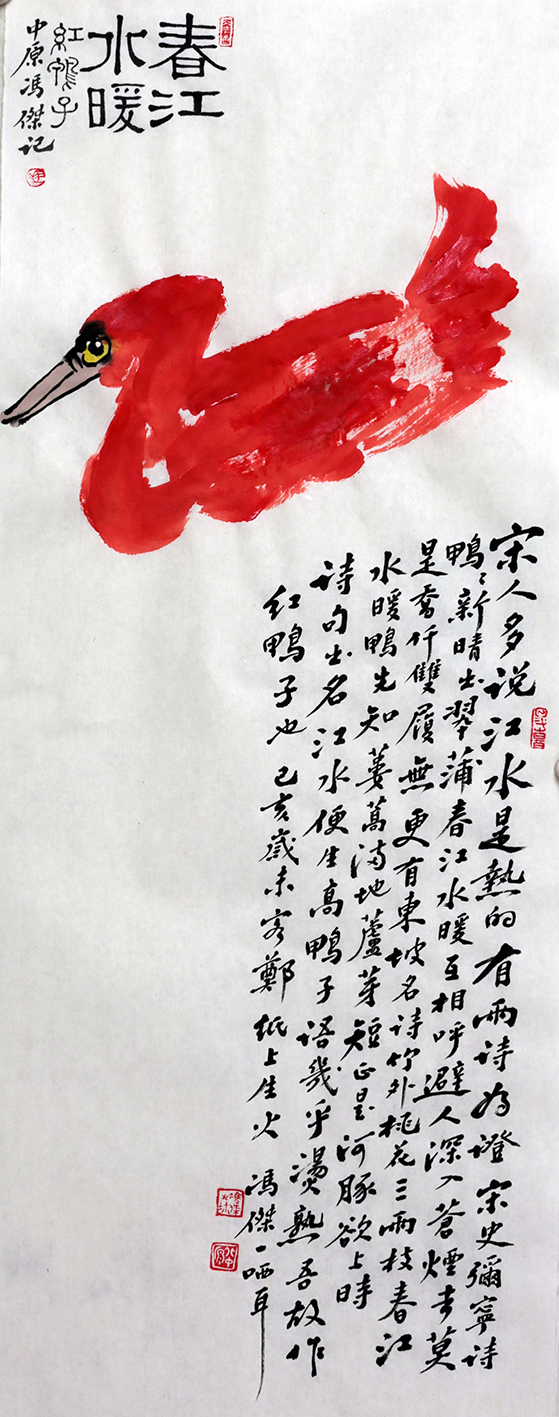 春江
水暖
紅鴨子
中原馮傑記
宋人多说江水是熱的有兩诗为證宋史彌寧诗
鴨〻新晴出翠蒲春江水暖互相呼避人深入蒼煙去莫
是喬仟雙履無更有東坡名诗竹外桃花三兩枝春江
水暖鴨先知蔞蒿满地蘆芽短正是河豚欲上時
诗句出名江水便生高鴨子语幾乎燙熟吾故作
紅鴨子也己亥歲末客鄭纸上生火馮傑一哂耳